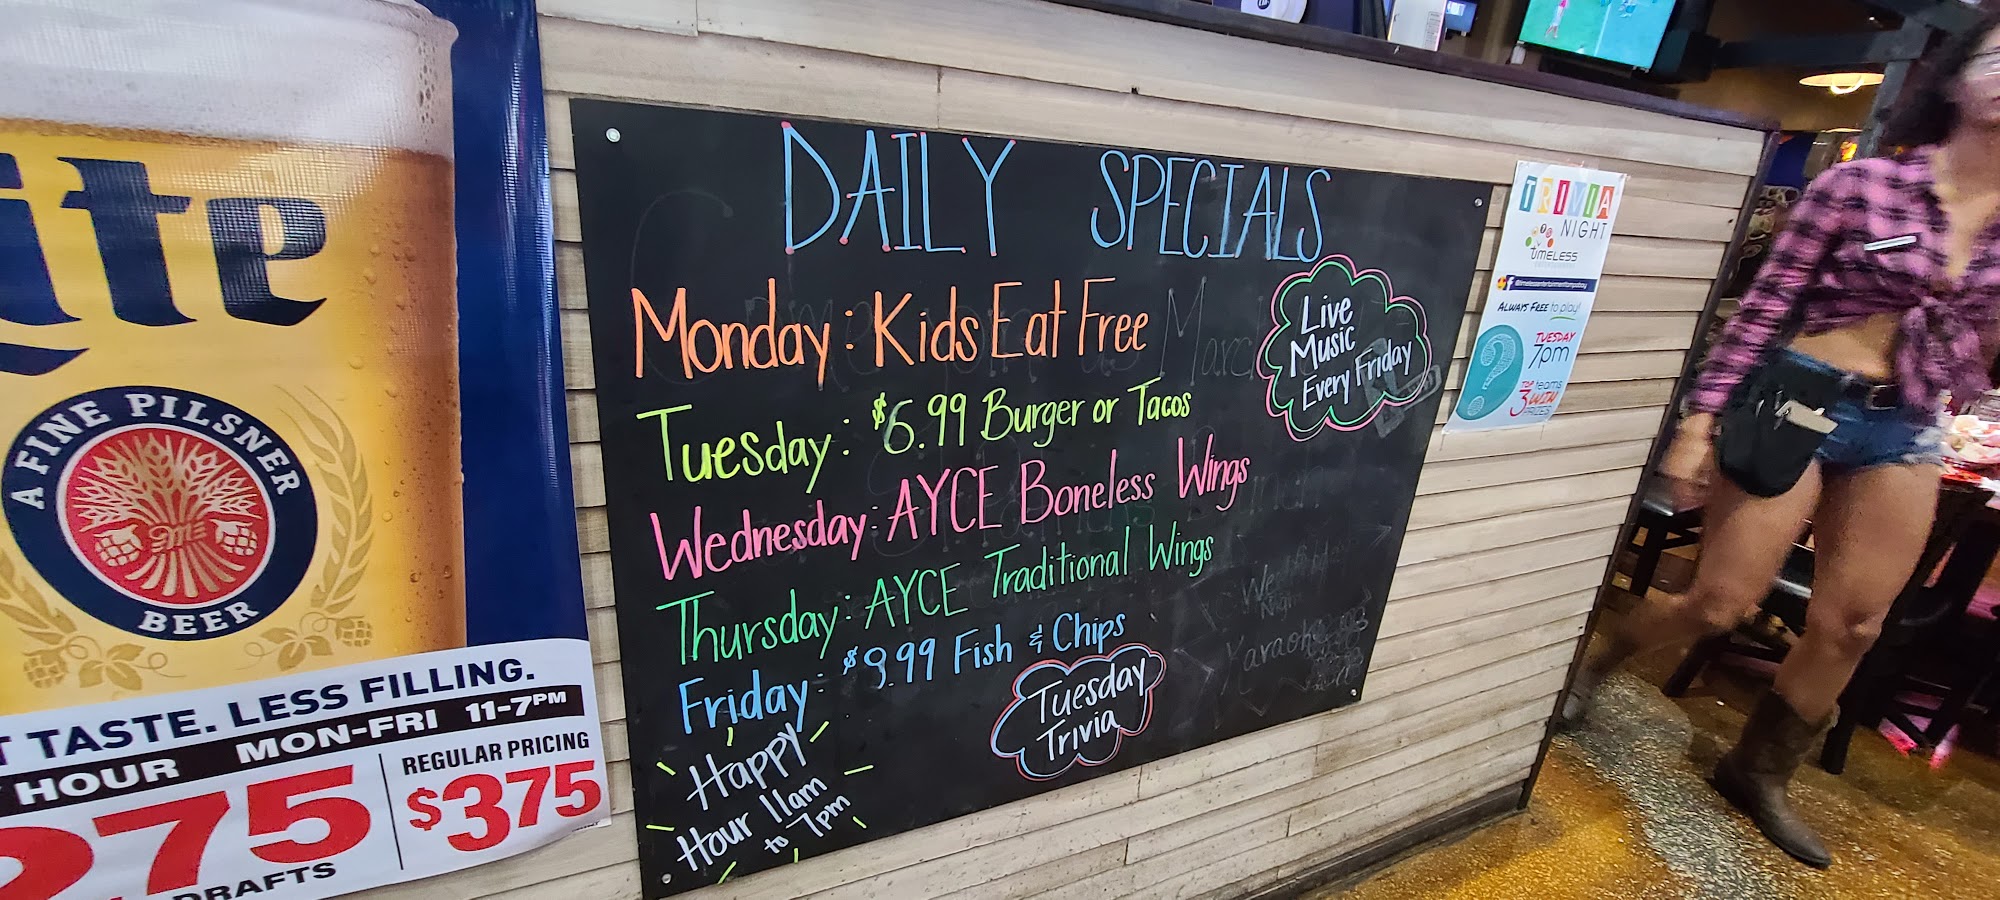 ite
A FINE PILSNER
BEER
T TASTE. LESS FILLING.
HOUR MON-FRI 11-7PM
275
DRAFTS
REGULAR PRICING
$375
DAILY SPECIALS
Monday: Kids Eat Free
Tuesday: $6.99 Burger or Tacos
Wednesday: AYCE Boneless Wings
Thursday: AYCE Traditional Wings
Friday: $9.99 Fish & Chips
Happy
Hour 11am
to 7pm
Tuesday
Trivia
Live
Music
Every Friday
Karaoke
TRIVIA
NIGHT
timeless
ALWAYS FREE to play!
TUESDAY
7pm
TOP teams
3 WIN
PRIZES